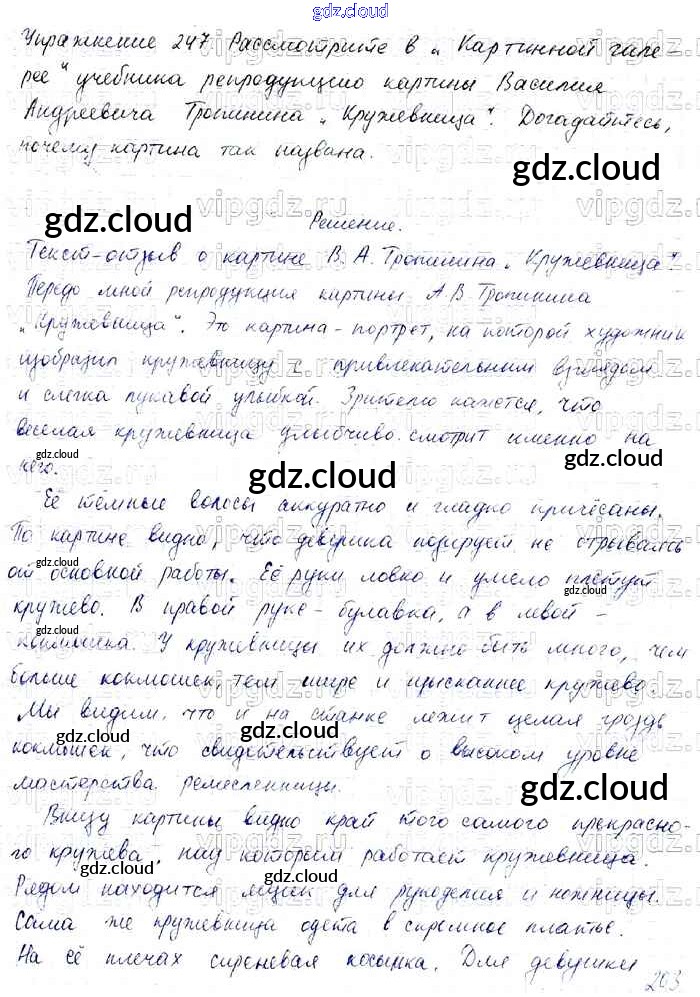 gdz.cloud
Упражнение 247. Рассмотрите в „Картинной гале-
рее" учебника репродукцию картины Василия
Андреевича Тропинина „Кружевница". Догадайтесь,
почему картина так названа.
gdz.cloud
gdz.cloud
Решение.
Текст-отзыв о картине В. А. Тропинина „Кружевница".
Передо мной репродукция картины А. В. Тропинина
„Кружевница". Это картина-портрет, на которой художник
изобразил кружевницу с привлекательным взглядом
и слегка лукавой улыбкой. Зрителю кажется, что
веселая кружевница улыбчиво смотрит именно на
него.
gdz.cloud
gdz.cloud
Её тёмные волосы аккуратно и гладко причёсаны.
По картине видно, что девушка позирует не отрываясь
gdz.cloud
от основной работы. Её руки ловко и умело плетут
gdz.cloud
кружево. В правой руке - булавка, а в левой -
gdz.cloud
коклюшка. У кружевницы их должно быть много, чем
больше коклюшек, тем шире и изысканнее кружево.
gdz.cloud
gdz.cloud
Мы видим, что и на станке лежит целая гроздь
gdz.cloud
коклюшек, что свидетельствует о высоком уровне
мастерства ремесленницы.
gdz.cloud
Внизу картины видно край того самого прекрасно-
го кружева, над которым работает кружевница.
gdz.cloud
Рядом находится ящик для рукоделия и ножницы.
Сама же кружевница одета в скромное платье.
gdz.cloud
На её плечах сиреневая косынка. Для девушки
203